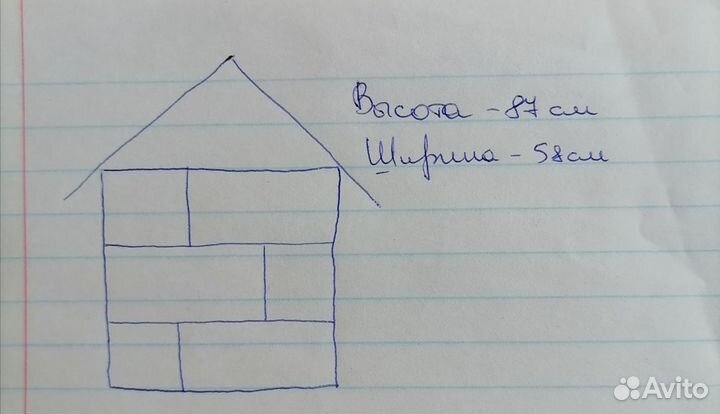 Высота - 87 см
Ширина - 58 см
Avito